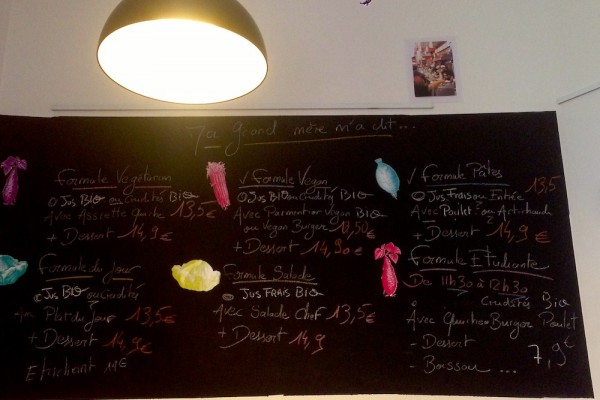 Ma grand mère m'a dit...
Formule Végétarien
Jus BIO ou Crudités BIO
Avec Assiette Quiche 13,5€
+ Dessert 14,9€
✓ Formule Vegan
Jus BIO ou Crudités BIO
Avec Parmentier Vegan BIO
ou Vegan Burger 13,50
+ Dessert 14,90€
✓ Formule Pâtes
Jus Frais ou Entrée 13,5
Avec Poulet ou Artichauts
+ Dessert 14,9€
Formule du Jour
Jus BIO ou Crudité
Avec Plat du Jour 13,5€
+ Dessert 14,9€
Etudiant 11€
Formule Salade
Jus FRAIS BIO
Avec Salade Chef 13,5€
+ Dessert 14,9
Formule Etudiante
De 11h30 à 12h30
Crudités Bio
Avec Quiche Burger Poulet
- Dessert
- Boisson ... 7,9€